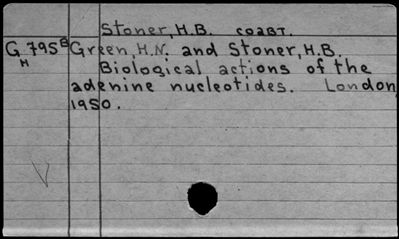 Stoner, H.B. соавт.
G 795B Green, H.N. and Stoner, H.B.
H Biological actions of the
adenine nucleotides. London,
1950.